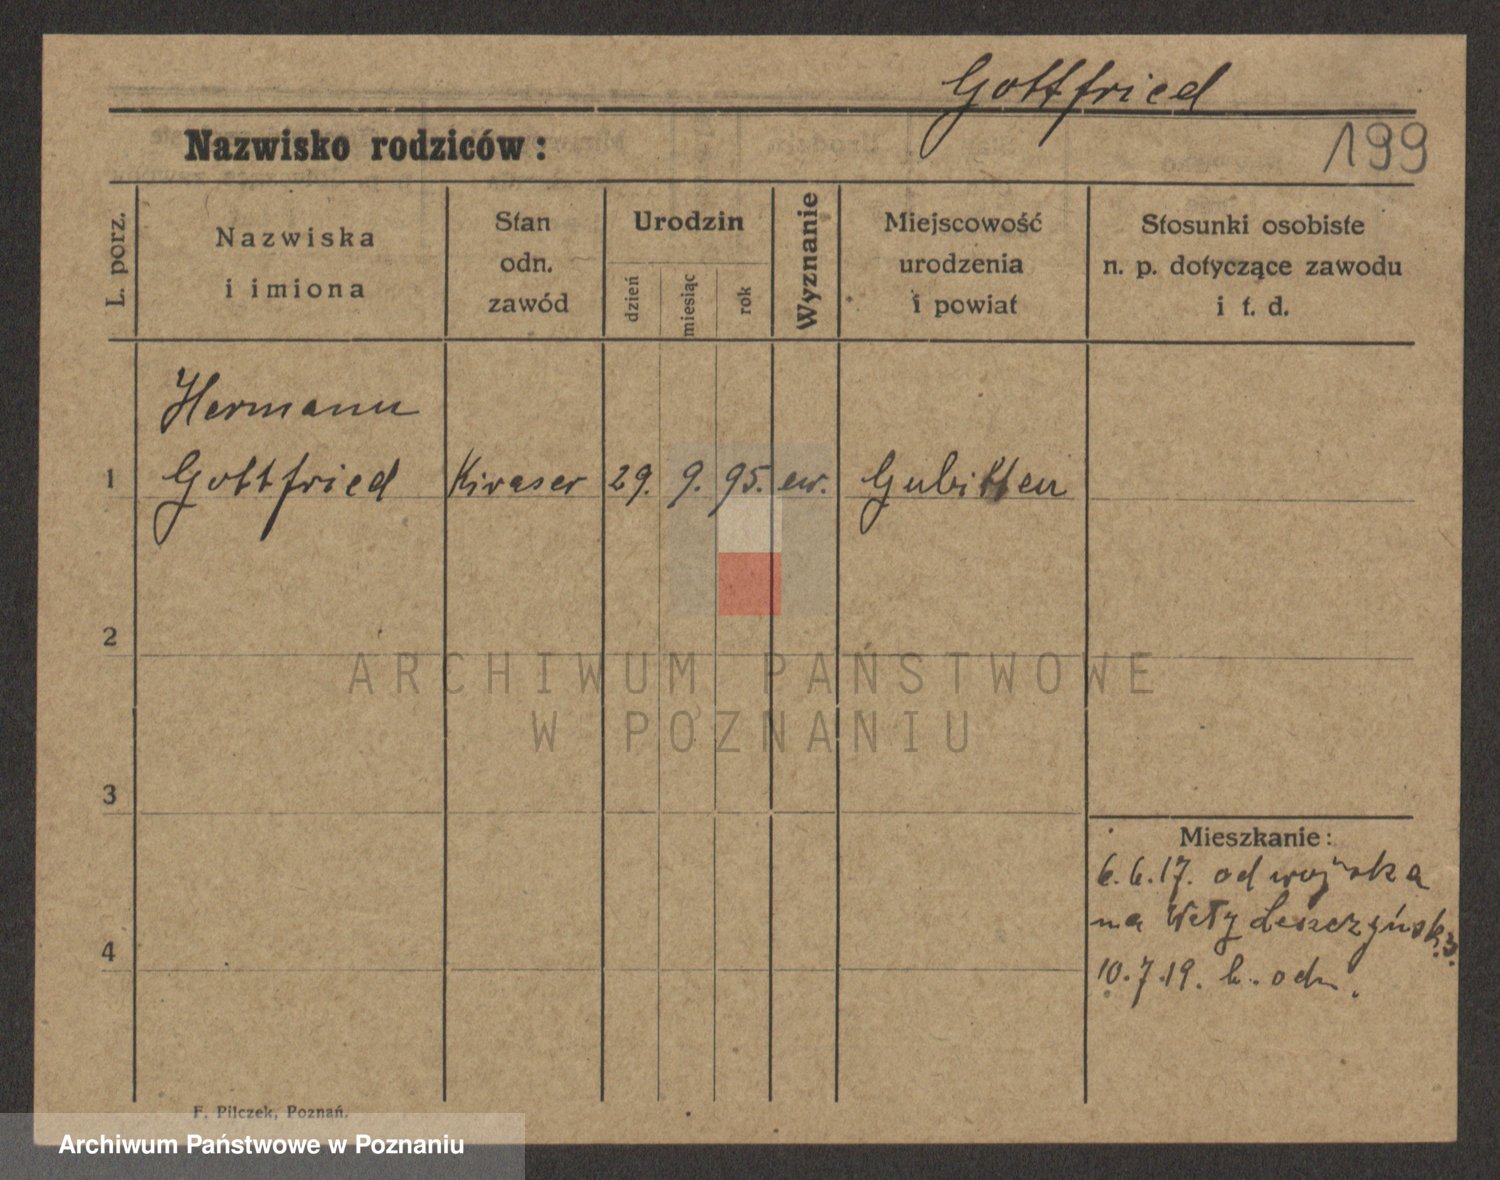 Gottfried
Nazwisko rodziców :
199
L. porz.
Nazwiska
i imiona
Stan
odn.
zawód
Urodzin
dzień
miesiąc
rok
Wyznanie
Miejscowość
urodzenia
i powiat
Stosunki osobiste
n. p. dotyczące zawodu
i t. d.
Hermann
1 Gottfried Kiraser 29. 9. 95. ew. Gubitten
2
ARCHIWUM PAŃSTWOWE
W POZNANIU
3
Mieszkanie :
6.6.17. od wojska
na Wały Leszczyńsk. 3.
4
10.7.19. b. odn.
F. Pilczek, Poznań.
Archiwum Państwowe w Poznaniu